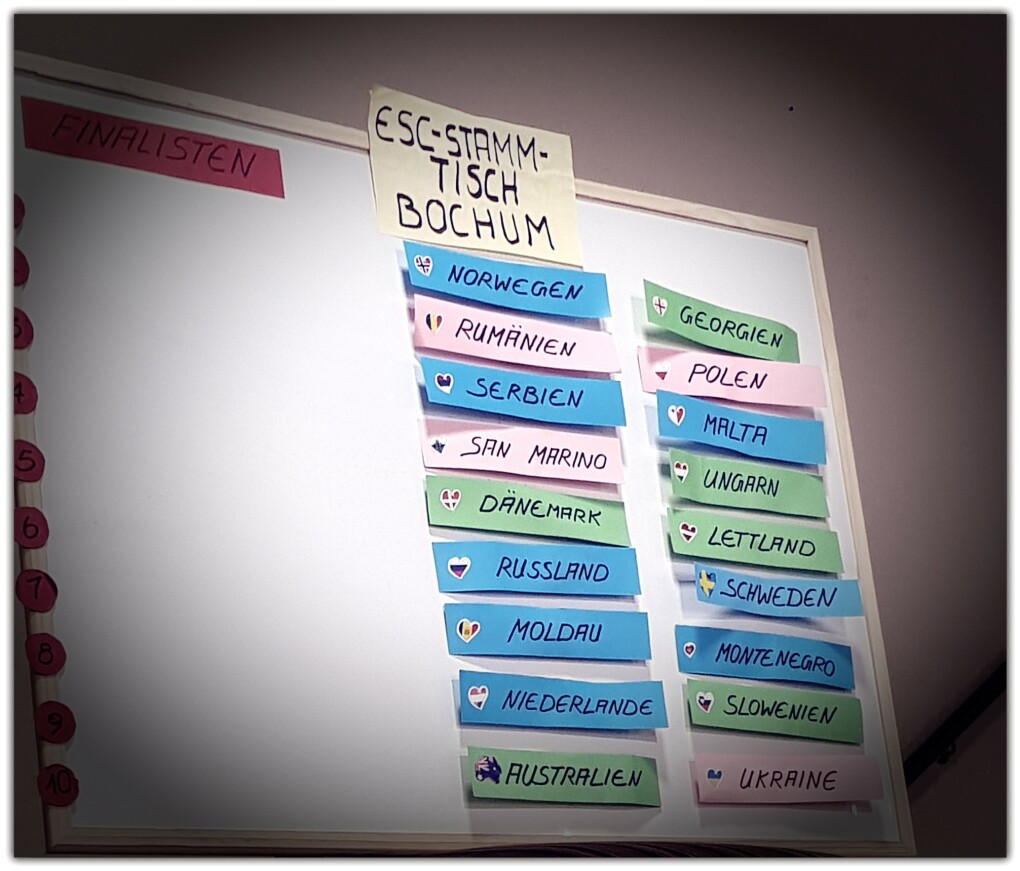 FINALISTEN
ESC-STAMM-
TISCH
BOCHUM
3
4
5
6
7
8
9
10
NORWEGEN
RUMÄNIEN
SERBIEN
SAN MARINO
DÄNEMARK
RUSSLAND
MOLDAU
NIEDERLANDE
AUSTRALIEN
GEORGIEN
POLEN
MALTA
UNGARN
LETTLAND
SCHWEDEN
MONTENEGRO
SLOWENIEN
UKRAINE